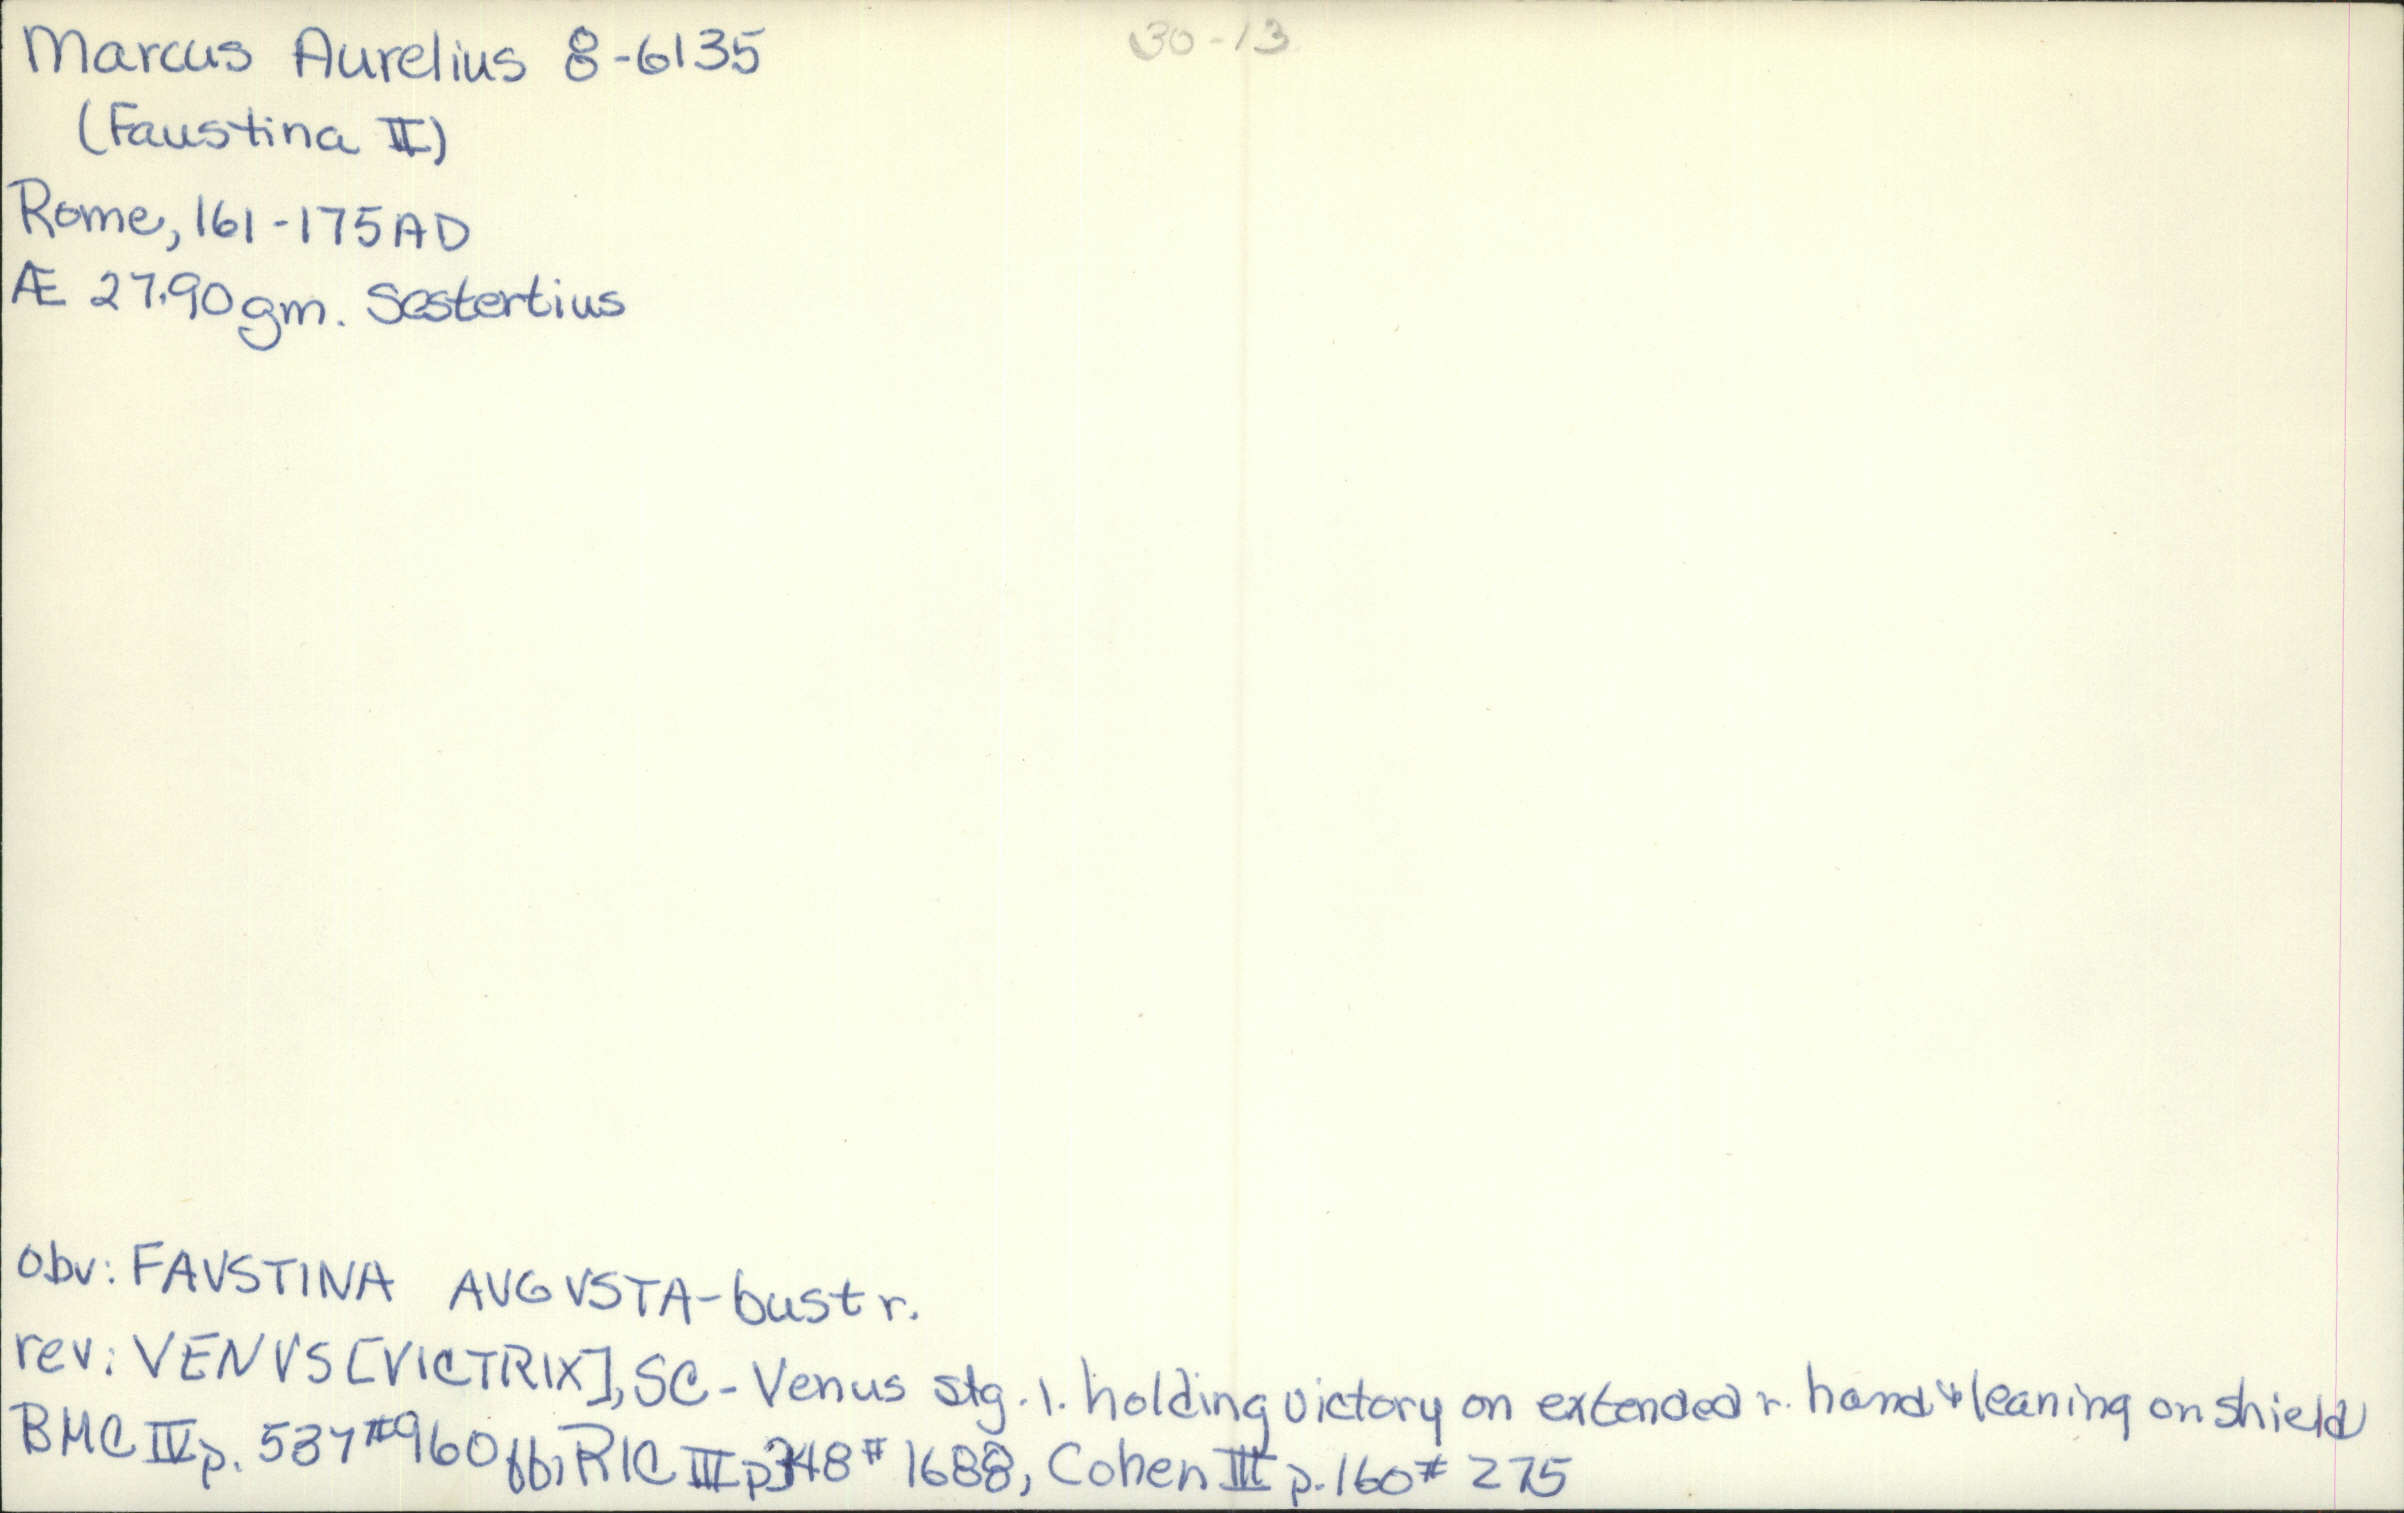 Marcus Aurelius 8-6135
30-13
(Faustina II)
Rome, 161-175 AD
Æ 27.90 gm. Sestertius
obv: FAVSTINA AVGVSTA - bust r.
rev: VENVS [VICTRIX], SC - Venus stg. l. holding victory on extended r. hand & leaning on shield
BMC IV p. 537 #960 ff; RIC III p348 # 1688, Cohen III p. 160 # 275